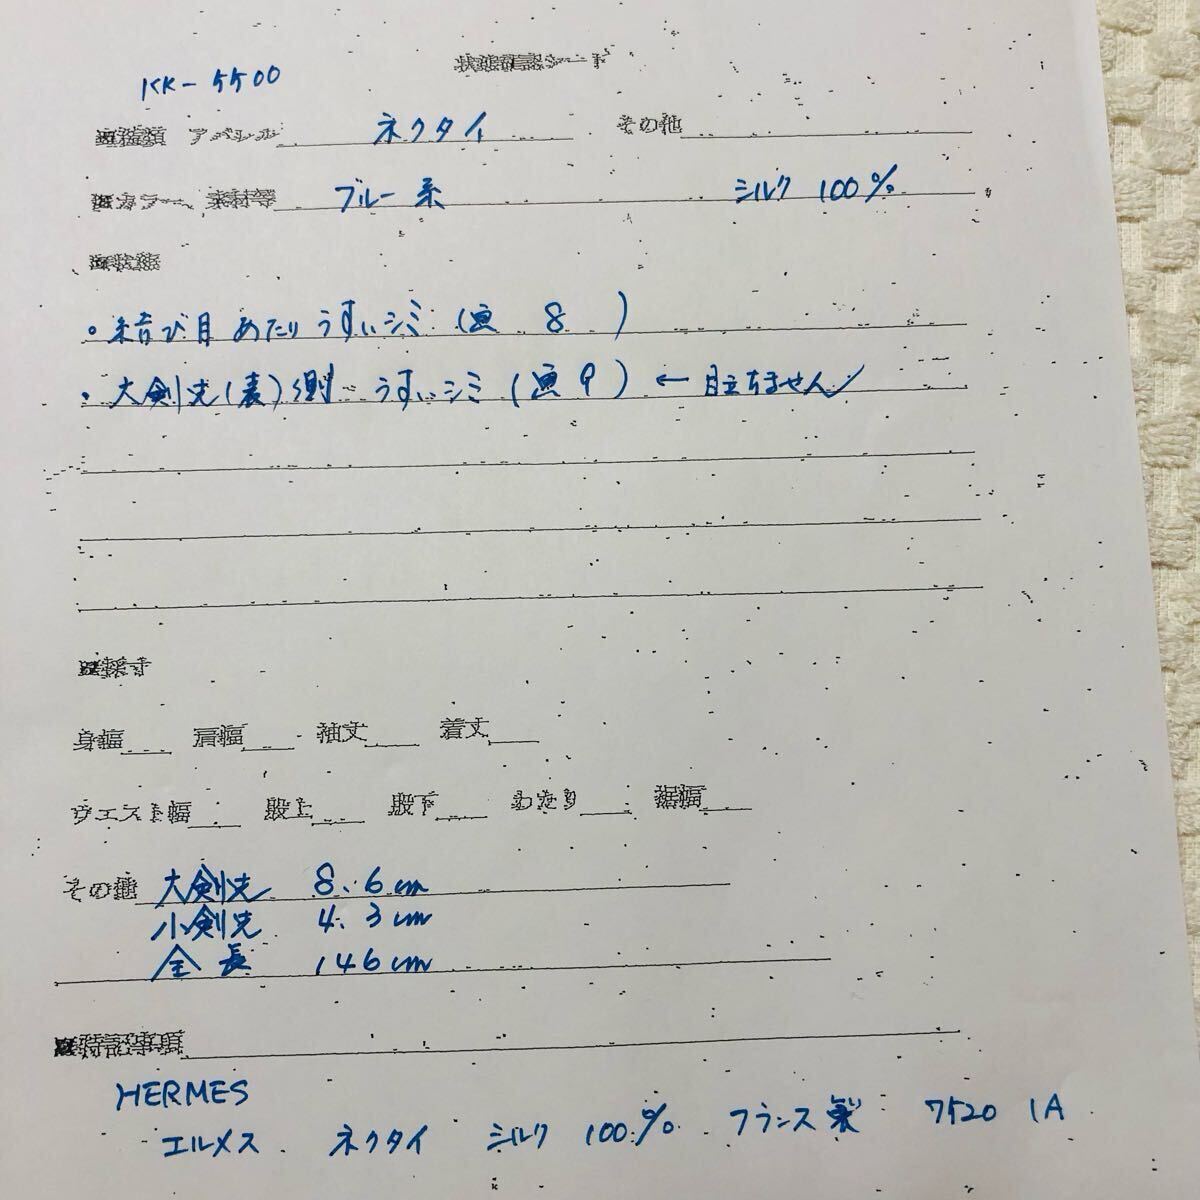 状態確認シート
KK-5500
■種類 アパレル ネクタイ その他
■カラー、素材等 ブルー系 シルク 100%
■状態
・結び目 あたり うすいシミ (画 8 )
・大剣先(表)側 うすいシミ (画 9 ) ← 目立ちません/
■採寸
身幅 肩幅 袖丈 着丈
ウエスト幅 股上 股下 わたり 裾幅
その他 大剣先 8.6cm
小剣先 4.3cm
全長 146cm
■特記事項
HERMES
エルメス ネクタイ シルク 100% フランス製 7520 IA